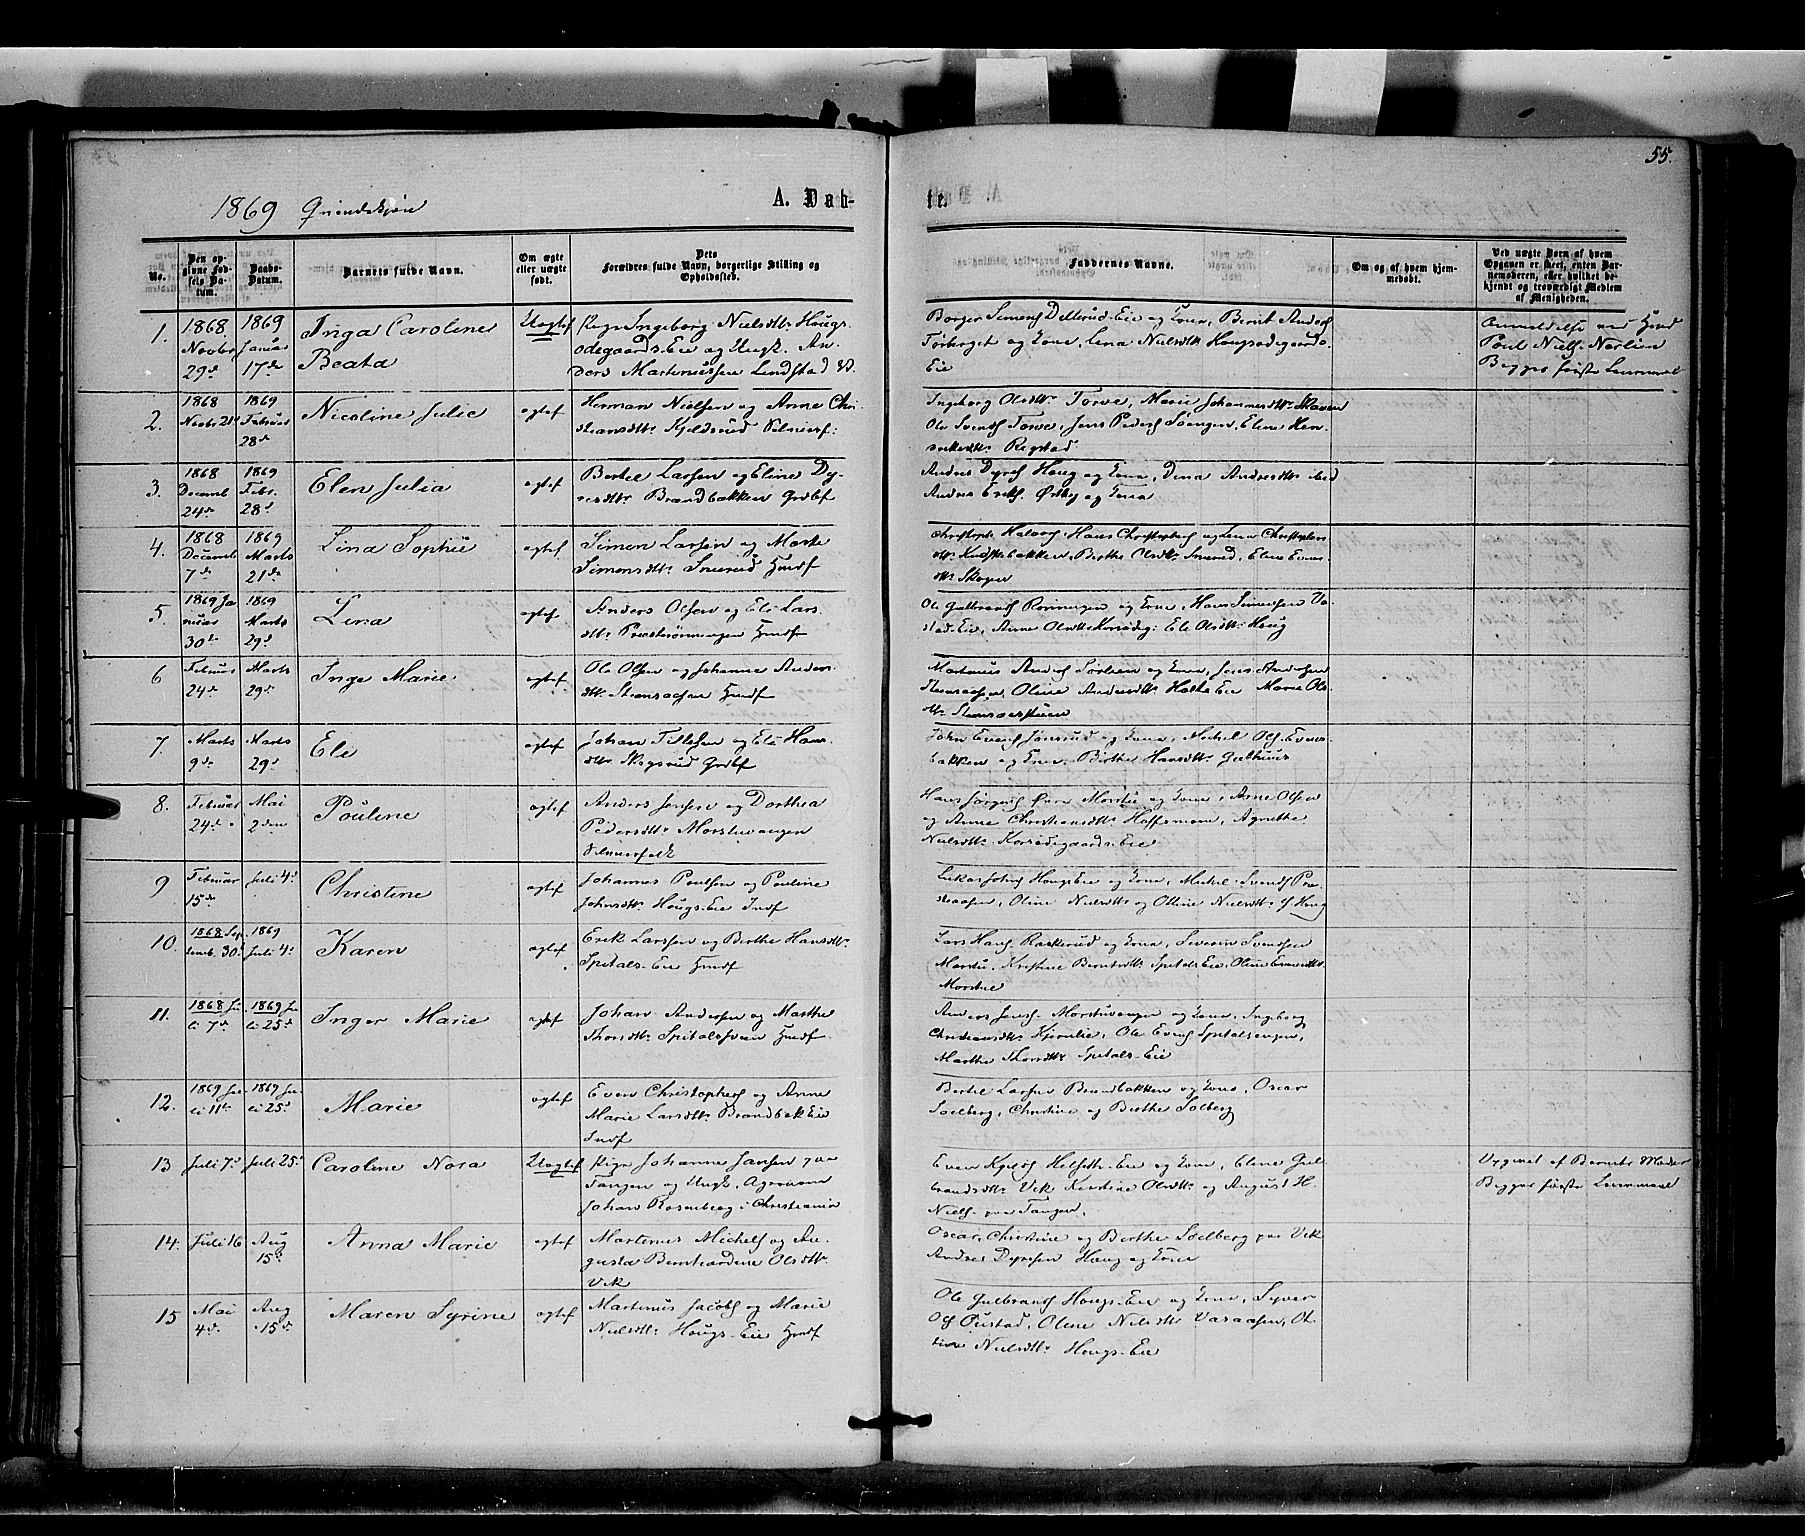 55.
1869 Qvindekjøn
A. Døb-
te.
No.
Den op-
givne Fød-
sels Da-
tum.
Daabs-
Datum.
Barnets fulde Navn.
Om ægte
eller uægte
født.
Dets
Forældres fulde Navn, borgerlige Stilling og
Opholdssted.
Faddernes Navne.
Om og af hvem hjem-
medøbt.
Ved uægte Børn af hvem
Opgaven er skeet, enten Bar-
nemoderen, eller hvilket be-
kjendt og troværdigt Medlem
af Menigheden.
1.
1868
Novbr
29de
1869
Januar
17de
Inga Caroline
Beata
Uægtef
Pige Ingeborg Nielsdtr Hougs-
ødegaards-Eie og Ungk. An-
ders Martiniussen Lindstad
Borger Simens Dellerud-Eie og Kone, Bernt Anders
Torberget og Kone, Lena Nielsdtr Hougsødegaards
Eie
Anmeldelse ved
Poul Niels. Nerlien
Begges første Leiermaal
2.
1868
Novbr 21de
1869
Februar
28de
Nicoline Julie
ægtef
Herman Nielsen og Anne Chri
stiansdtr Kjeldsrud
Ingeborg Olsdtr Torve, Marie Johannesdtr Skaven
Ole Svends Torve, Jens Peders Soengen, Elene Hen-
riksdtr Regstad
3.
1868
Decemb
24de
1869
Febr.
28d
Elen Julia
ægtef
Bertel Larsen og Eline Dy-
resdtr Brændbakken Grdbf
Andreas Dyres Houg og Kone, Dina Andersdtr ibid
Anders Eriks. Østby og Kone
4.
1868
Decemb
7de
1869
Marts
21de
Lina Sophie
ægtef
Simen Larsen og Marte
Simensdtr Snerud Hmdf
Christoph Halvors. Hans Christophers og Lena Christophers
dtr Kudstebakken, Berthe Olsdtr Snerud, Elene Evens
dtr Skogen
5
1869 Ja
nuar
30te
1869
Marts
29d
Lina
ægtef
Anders Olsen og Eli Lars
dtr Præsterønningen Hmdf
Ole Gulbrands Rønningen og Kone, Hans Simensen Va
stad-Eie, Anne Olsdtr Korsødeg: Eli Olsdtr Houg
6
Februar
24de
Marts
29d
Inge Marie
ægtef
Ole Olsen og Johanne Anders
dtr Stensaasen Hmdf
Martinus Anders Sørlien og Kone, Jens Andersen
Stensaasen, Oline Andersdtr Holte Eie Marie Ols
dtr Stensaasstuen
7.
Marts
9de
Marts
29d
Eli
ægtef
Johan Tollefsen og Eli Hans
dtr Skogsrud Grdbf
John Evens Jønsrud og Kone, Michel Ols. Evens
bakken og Kone, Birthe Hansdtr Gulhuus
8.
Februar
24de
Mai
2den
Pouline
ægtef
Anders Jensen og Dorthea
Pedersdtr Morstuvangen
Hans Jørgens Øvre Morstu og Kone, Arne Olsen
og Anne Christiansdtr Haffsmoen, Agnethe
Nielsdtr Korsødegaards-Eie
9
Februar
15de
Juli 4d
Christine
ægtef
Johannes Poulsen og Pouline
Johnsdtr Hougs-Eie Indf
Lukas Johns Hougs-Eie og Kone, Michel Svends Præ
steaasen, Oline Nielsdtr og Olline Nielsdtr af Houg
10.
1868 Sep
temb. 30te
1869
Juli 4d
Karen
ægtef
Erik Larssen og Berthe Hansdtr
Spitals-Eie Hmdf
Lars Hans. Raskerud og Kone, Severin Svendsen
Morstu, Kristine Berntsdtr Spitals Eie, Oline Evensdtr
Morstue
11.
1868 Ju
li 7de
1869 Ju
li 25d
Inger Marie
ægtef
Johan Andersen og Marthe
Thorsdtr Spitalshveen Hmdf
Anders Jens. Morstuvangen og Kone, Ingeborg
Christiansdtr Kjernlie, Ole Evens Spitalsengen,
Marthe Thorsdtr Spitals-Eie
12.
1869 Ju
li 11te
1869 Ju
li 25d
Marie
ægtef
Even Christophers og Anne
Marie Larsdtr Brændbæk Eie
Indf
Bertel Larsen Brændbakken og Kone, Oscar
Solberg, Christine og Berthe Solberg
13
Juli 7d
Juli 25d
Caroline Nora
Uægtef
Pige Johanne Jansen paa
Tangen og Ungk. Agronom
Johan Rosenberg i Christiania
Even Kjelds Helseth-Eie og Kone, Eline Gul
brandsdtr Vik Kirstine Olsdtr og August H.
Niels. paa Tangen.
Opgivet af Barnets Moder
Begges første Leiermaal
14.
Juli 16
Aug
15d
Anna Marie
ægtef
Martinus Michels og Au-
gusta Bernhardine Olsdtr
Vik
Oscar, Christine og Berthe Solberg paa Vik
Andreas Dyresen Houg og Kone
15
Mai
4de
Aug
15d
Maren Syrine
ægtef
Martinus Jacobs og Marie
Nielsdtr Hougs-Eie Hmdf
Ole Gulbrands Hougs-Eie og Kone, Syver
Ols Øustad, Oline Nielsdtr Vasaasen, Ot-
tine Nielsdtr Hougs-Eie